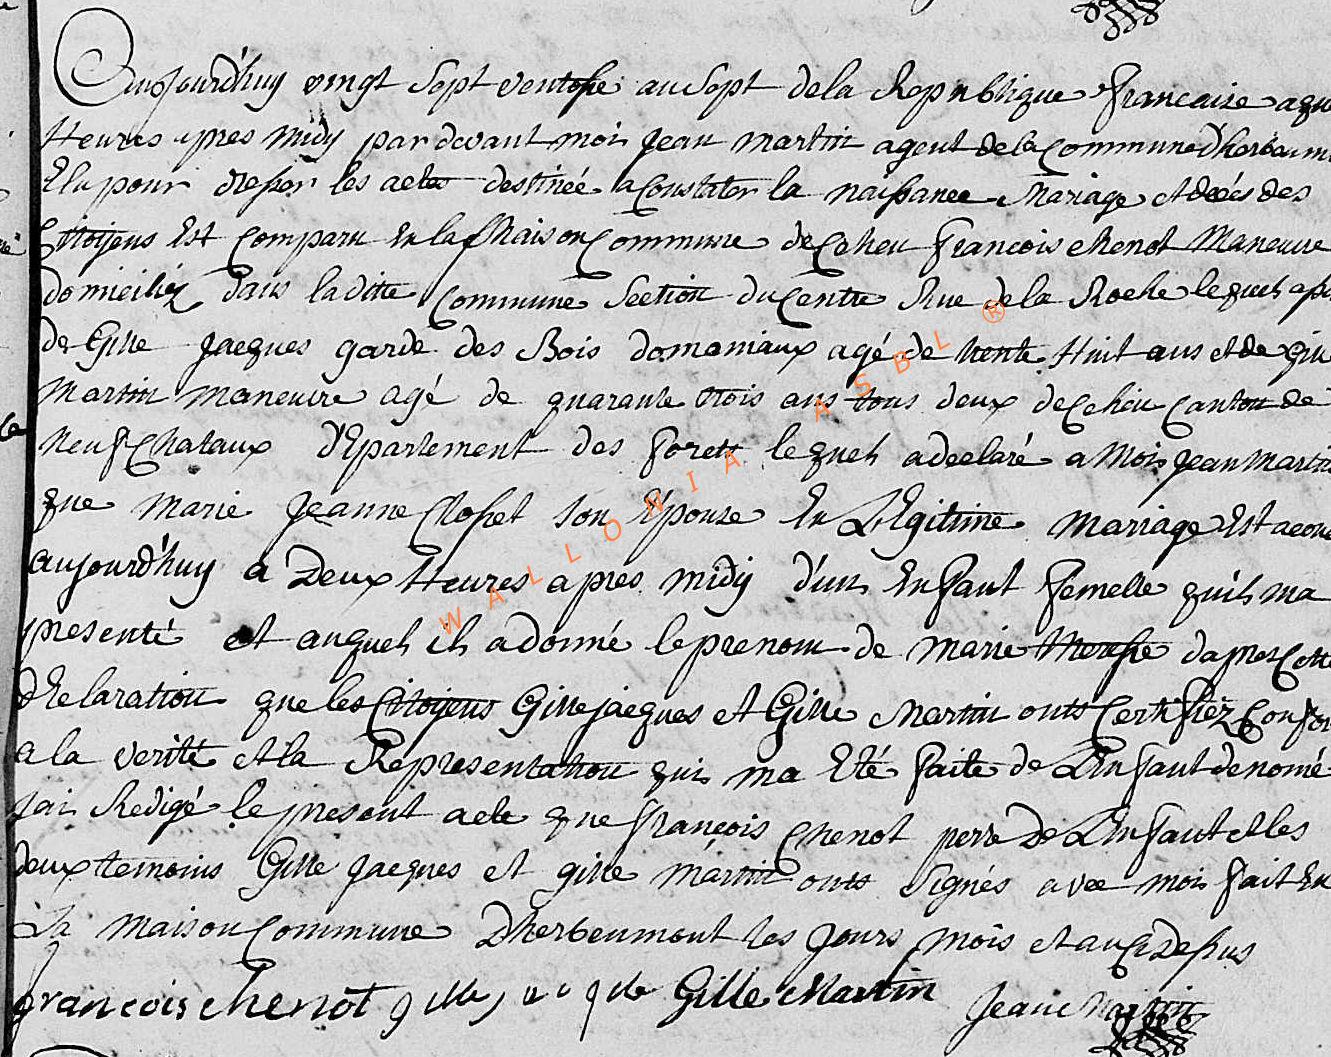 Aujourd'huy vingt Sept ventose an Sept de la Republique francaise a qu
Heures apres midy par devant moi Jean martin agent de la Commune d'herbeum
Elu pour dresser les actes destinée a Constater la naissance Mariage et décès des
Citoyens Est Comparu En la Maison Commune de francois chenot Maneuvre
domiciliéz dans la ditte Commune Section du Centre Rue de la Roche lequel
de Gille Jacques garde des Bois domaniaux agé de trente Huit ans et de Gille
Martin maneuvre agé de quarante trois ans tous deux de Canton de
Neufchataux d'Epartement des foret lequel a declaré a Moi Jean Martin
que Marie Jeanne son Epouse En LEgitime Mariage Est acou
aujourd'huy a Deux Heures apres midy d'un Enfant femelle quil ma
presenté et auquel il a donné le prenom de marie dapres Cette
dEclaration que les Citoyens Gille jacques et Gille Martin onts Certifiez Confor
a la verité et la Representation qui ma Eté faite de LEnfant denomé
jai Redigé le present acte que françois Chenot perre de LEnfant et les
deux temoins Gille Jacques et gille martin onts Signés avec moi fait En
La maison Commune Dherbeumont les Jours mois et an Ci Dessus
francois chenot Gille Martin Jean Martin
WALLONIA ASBL ®